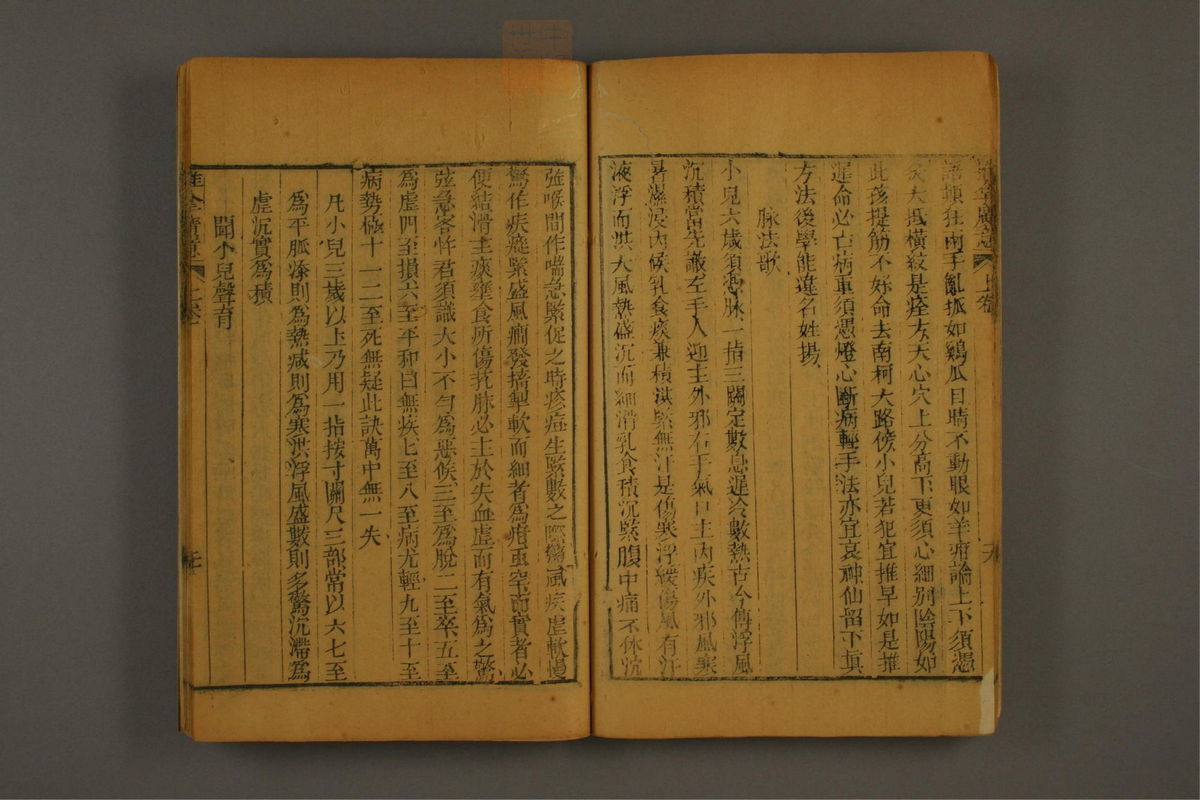 上卷
頭狂兩手亂抓如鷄瓜目睛不動眼如羊疳論上下須憑
大抵橫紋是痊方天心穴上分高下更須心細别陰陽如
此莈提筋不好命去南柯大路傍小兒若犯宜推早如是推
遲命必亡病重須憑燈心斷病輕手法亦宜良神仙留下真
方法後學能違名姓揚
脉法歌
小兒六歲須憑脉一指三關定數息遲冷數熱古今傳浮風
沉積當先識左手人迎主外邪右手氣口主内疾外邪風寒
暑濕浸内候乳食痰兼積洪緊無汗是傷寒浮緩傷風有汗
液浮而洪大風熱盛沉而細滑乳食積沉緊腹中痛不休沉
弦喉間作喘急緊促之時疹痘生緊數之際驚風疾虚軟慢
驚作疾瘧緊盛風癇發搐掣軟而細者為疳虫牢而實者必
便結滑主痰壅食所傷芤脉必主於失血虚而有氣為之驚
弦急客忤君須識大小不勻為惡候三至為脫二至卒五至
為虚四至損六至平和曰無疾七至八至病尤輕九至十至
病勢極十一二至死無疑此訣萬中無一失
凡小兒三歲以上乃用一指按寸關尺三部常以六七至
為平脈添則為熱减則為寒洪浮風盛數則多驚沉滯為
虚沉實為積
聞小兒聲音